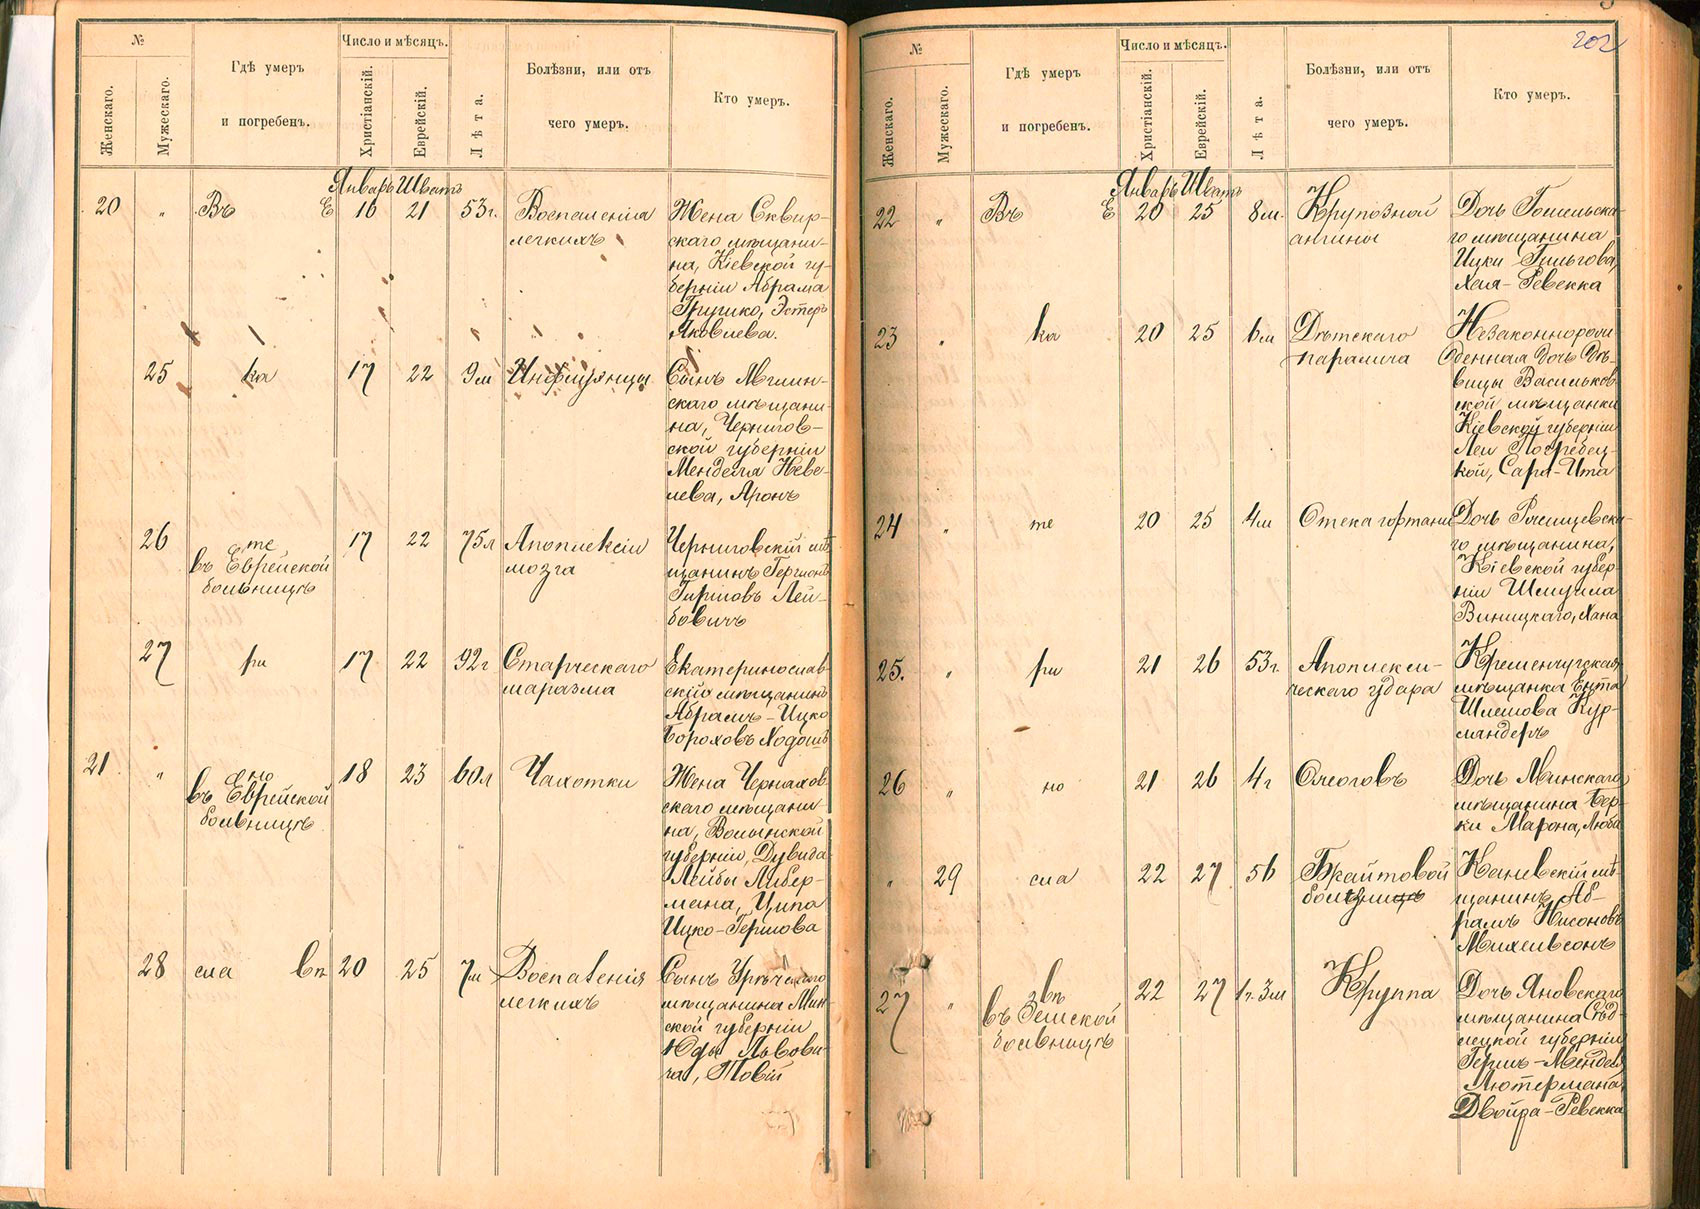 №
Женскаго.
Мужескаго.
Гдѣ умеръ
и погребенъ.
Число и мѣсяцъ.
Христіанскій.
Еврейскій.
Лѣта.
Болѣзни, или отъ
чего умеръ.
Кто умеръ.
Январь Шватъ
20 " Въ Е 16 21 53 г. Воспаленія
легкихъ
Жена Сквир-
скаго мѣщани-
на, Кіевской гу-
берніи Абрама
Эстеръ
Яковлева.
25 ка 17 22 9 м Инфлуэнцы
Сынъ Мглин-
скаго мѣщани-
на, Чернигов-
ской губерніи
Менделя Неве-
лева, Аронъ
26 те
въ Еврейской
больницѣ
17 22 75 л Апоплексіи
мозга
Черниговскій мѣ
щанинъ
Гиршовъ Лей-
бовичъ
27 ри 17 22 92 г Старческаго
маразма
Екатеринослав-
скій мѣщанинъ
Абрамъ-Ицко
Бороховъ Ходошъ
21 " но
въ Еврейской
больницѣ
18 23 60 л Чахотки
Жена Черняхов
скаго мѣщани
на, Волынской
губерніи, Дувида
Лейбы Либер-
мана, Ципа
Ицко-Гершова
28 сла вп 20 25 7 м Воспаленія
легкихъ
Сынъ
мѣщанина Мин-
ской губерніи
Юды Львови-
ча, Товій
202
№
Женскаго.
Мужескаго.
Гдѣ умеръ
и погребенъ.
Число и мѣсяцъ.
Христіанскій.
Еврейскій.
Лѣта.
Болѣзни, или отъ
чего умеръ.
Кто умеръ.
Январь Шватъ
22 " Въ Е 20 25 8 м. Крупозной
ангины
Дочь Гомельска-
го мѣщанина
Ицки
Хая-Ревекка
23 " ка 20 25 6 м Дѣтскаго
паралича
Незаконнорож
денная дочь дѣ-
вицы Васильков
ской мѣщанки
Кіевской губерніи
Леи Погребец-
кой, Сара-Ита
24 " те 20 25 4 м Отека гортани
Дочь Ржищевска-
го мѣщанина,
Кіевской губер
ніи Шмуила
Виницкаго, Хана
25. " ри 21 26 53 г. Апоплекси-
ческаго удара
Кременчугская
мѣщанка Ента
Шлемова Кур-
ляндеръ
26 " но 21 26 4 г Ожоговъ
Дочь Минскаго
мѣщанина Бер-
ки Марона, Люба
" 29 сла 22 27 56 Брайтовой
Каневскій мѣ
щанинъ Аб-
рамъ Нисоновъ
Михельсонъ
27 " вп
въ Земской
больницѣ
22 27 1 г. 3 м Круппа
Дочь Яновскаго
мѣщанина Сѣд-
лецкой губерніи
Гершъ-Менделя
Лютермана,
Двойра-Ревекка